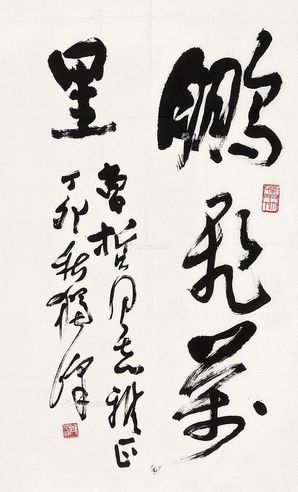 鹏飞万
里
曹哲同志雅正
丁卯秋